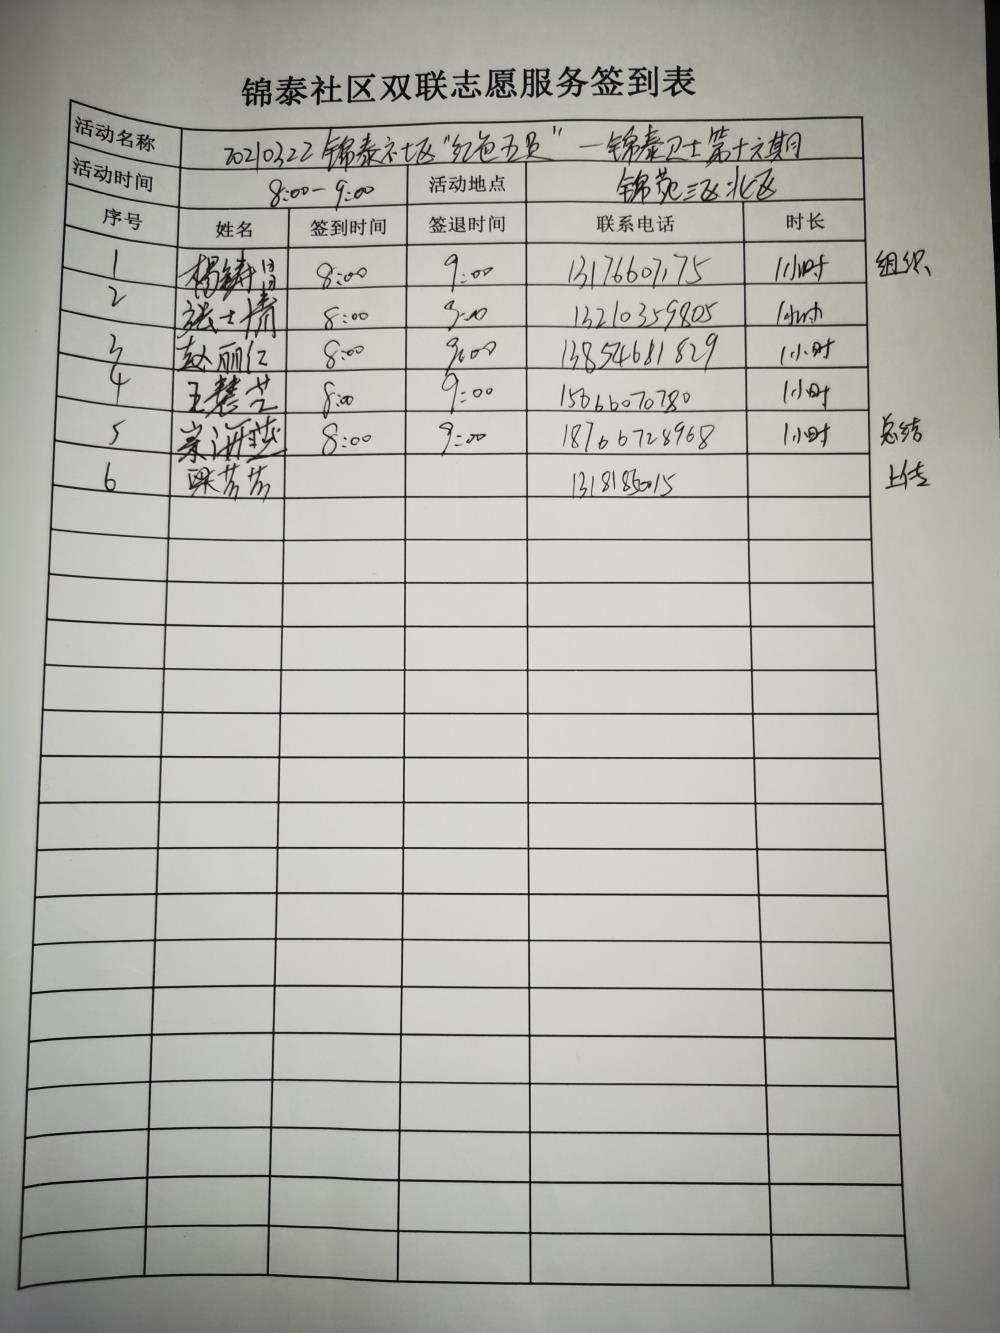 锦泰社区双联志愿服务签到表
活动名称 20210322 锦泰社区"红色五员"—锦泰卫士第十六期
活动时间 8:00-9:00 活动地点 锦苑三区北区
序号 姓名 签到时间 签退时间 联系电话 时长
1 杨 8:00 9:00 13176607175 1小时 组织
2 张士倩 8:00 9:00 13210359805 1小时
3 赵丽仁 8:00 9:00 13854681829 1小时
4 王慧芝 8:00 9:00 15666070780 1小时
5 宗海燕 8:00 9:00 18766728968 1小时 总结
6 梁芳芳 上传